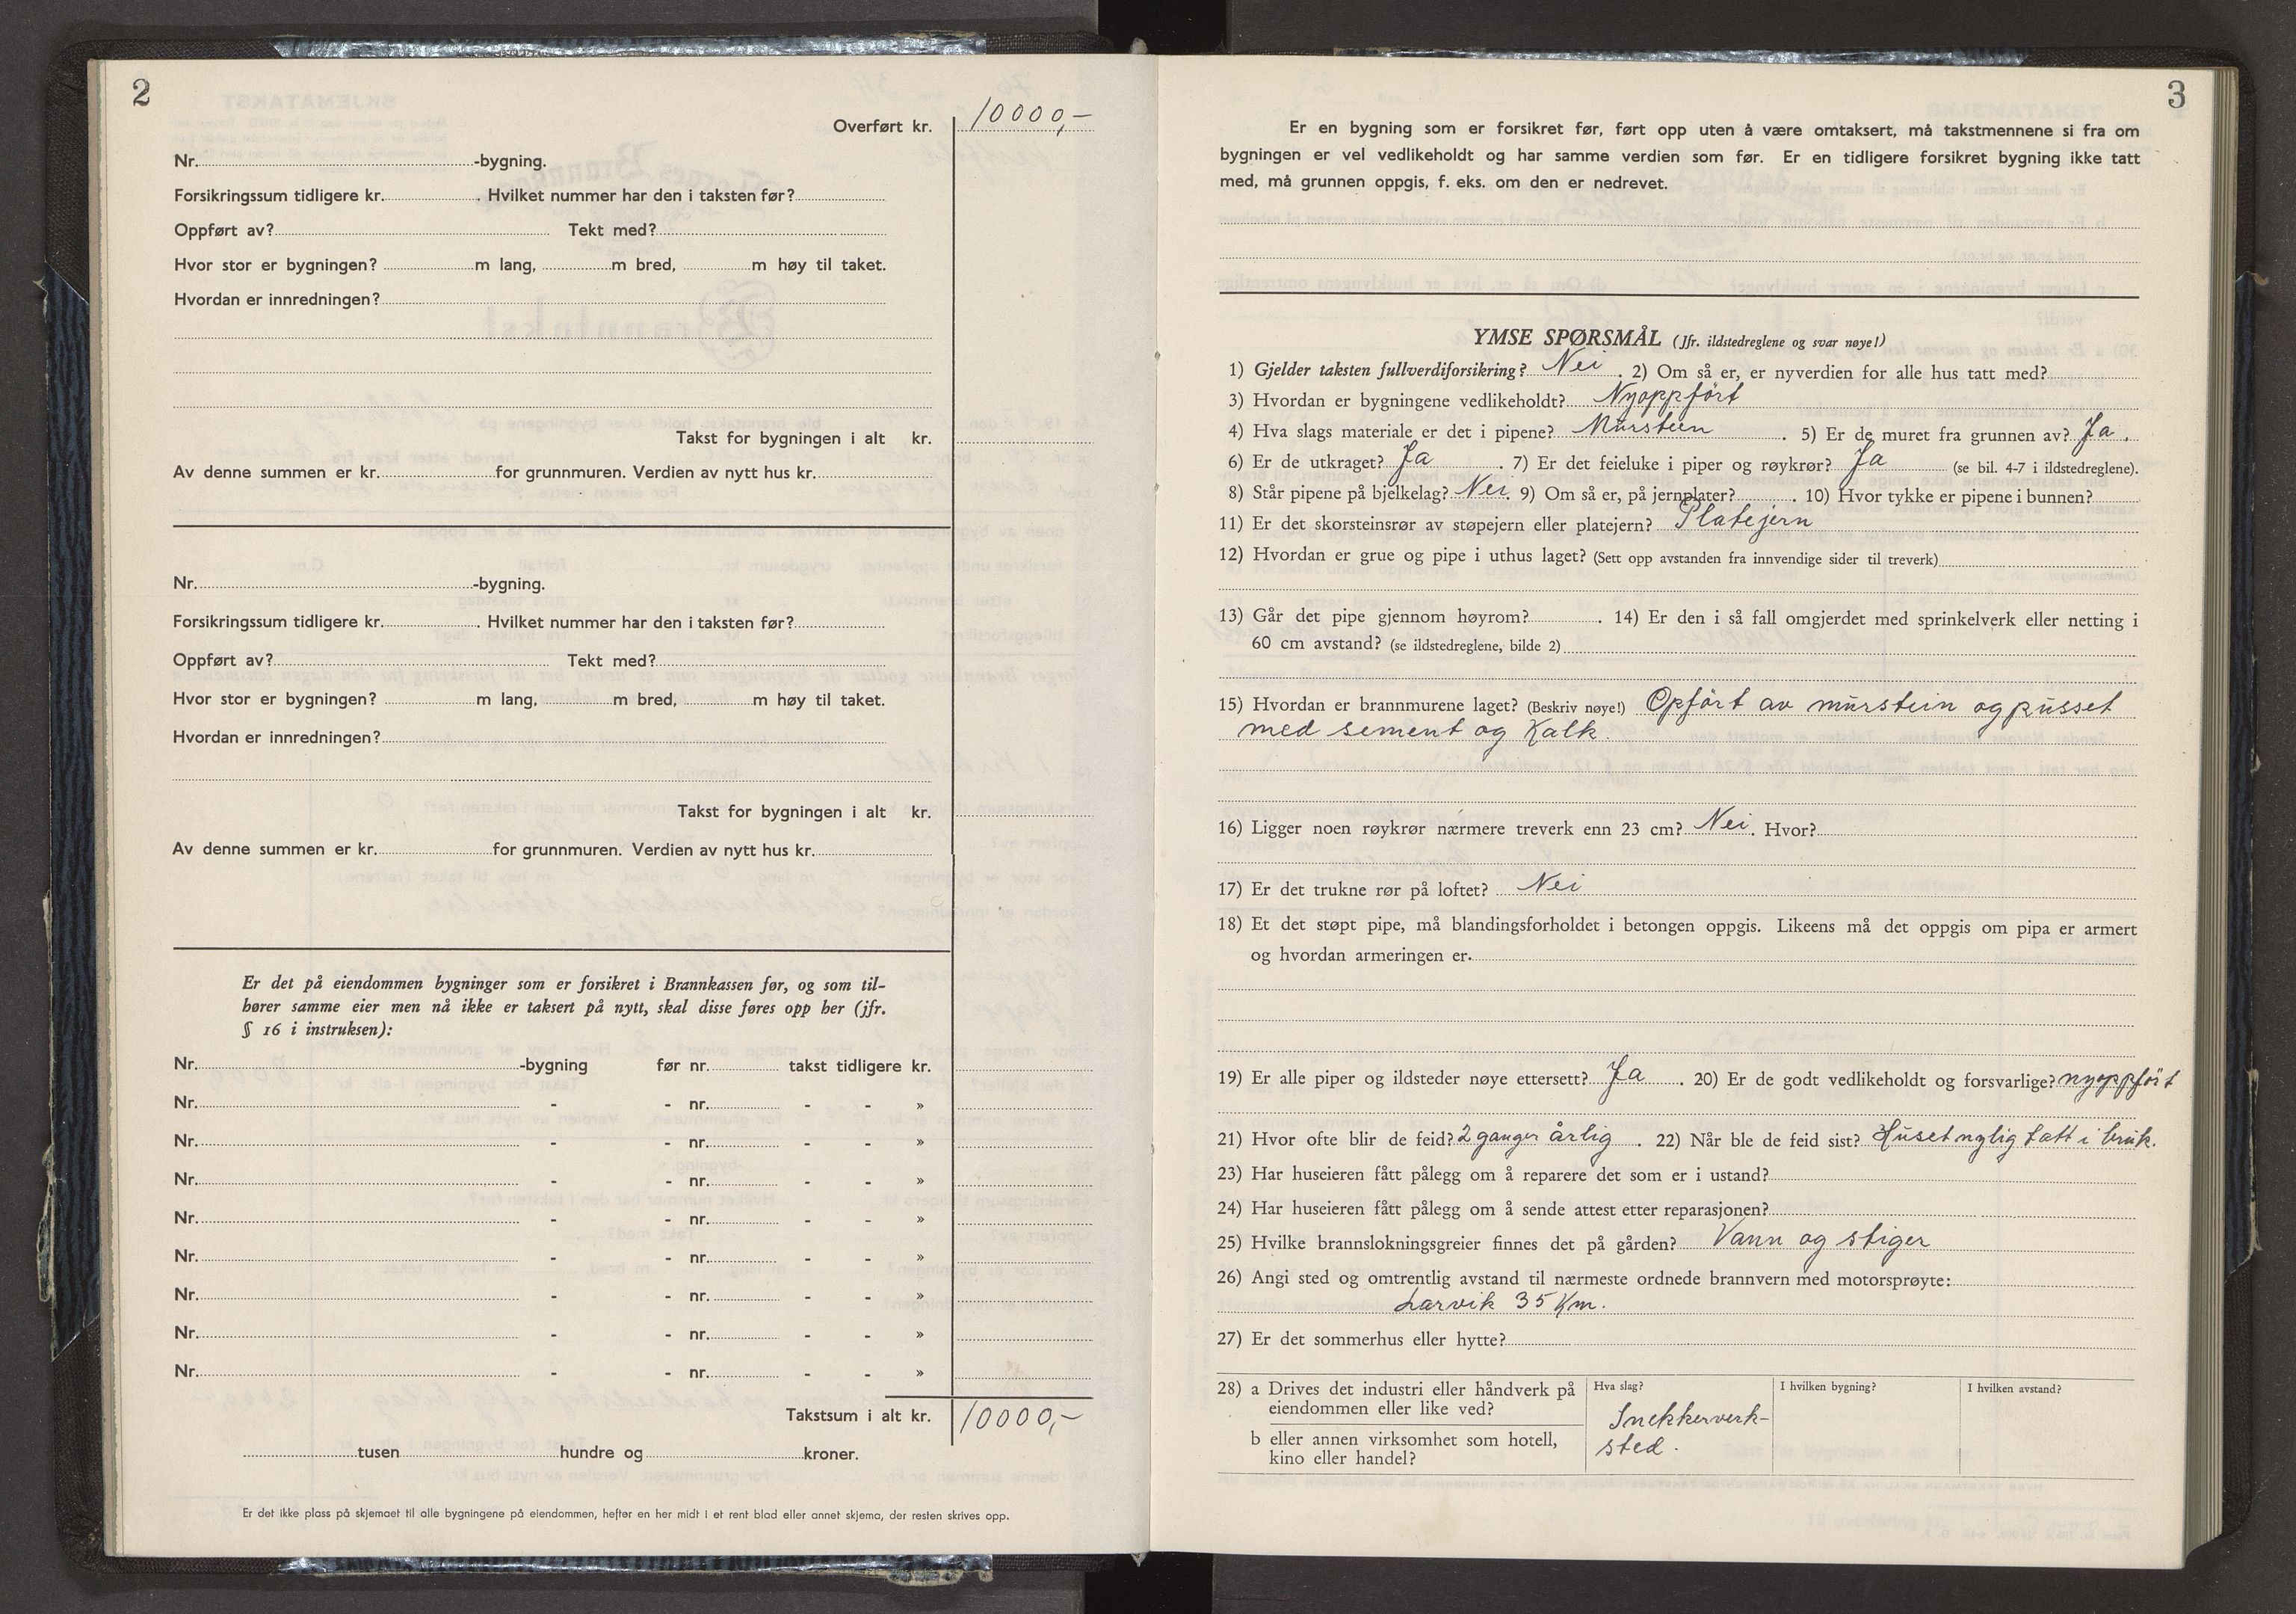 2
Overført kr. 10000,-
Nr. -bygning.
Forsikringssum tidligere kr. . Hvilket nummer har den i taksten før?
Oppført av? Tekt med?
Hvor stor er bygningen? m lang, m bred, m høy til taket.
Hvordan er innredningen?
Takst for bygningen i alt kr.
Av denne summen er kr. for grunnmuren. Verdien av nytt hus kr.
Nr. -bygning.
Forsikringssum tidligere kr. . Hvilket nummer har den i taksten før?
Oppført av? Tekt med?
Hvor stor er bygningen? m lang, m bred, m høy til taket.
Hvordan er innredningen?
Takst for bygningen i alt kr.
Av denne summen er kr. for grunnmuren. Verdien av nytt hus kr.
Er det på eiendommen bygninger som er forsikret i Brannkassen før, og som til-
hører samme eier men nå ikke er taksert på nytt, skal disse føres opp her (jfr.
§ 16 i instruksen):
Nr. -bygning før nr. takst tidligere kr.
Nr. - - nr. - - »
Nr. - - nr. - - »
Nr. - - nr. - - »
Nr. - - nr. - - »
Nr. - - nr. - - »
Nr. - - nr. - - »
Nr. - - nr. - - »
Nr. - - nr. - - »
Takstsum i alt kr. 10000,-
tusen hundre og kroner.
Er det ikke plass på skjemaet til alle bygningene på eiendommen, hefter en her midt i et rent blad eller annet skjema, der resten skrives opp.
3
Er en bygning som er forsikret før, ført opp uten å være omtaksert, må takstmennene si fra om
bygningen er vel vedlikeholdt og har samme verdien som før. Er en tidligere forsikret bygning ikke tatt
med, må grunnen oppgis, f. eks. om den er nedrevet.
YMSE SPØRSMÅL (Jfr. ildstedreglene og svar nøye!)
1) Gjelder taksten fullverdiforsikring? Nei . 2) Om så er, er nyverdien for alle hus tatt med?
3) Hvordan er bygningene vedlikeholdt? Nyoppfört
4) Hva slags materiale er det i pipene? Murstein . 5) Er de muret fra grunnen av? Ja .
6) Er de utkraget? Ja . 7) Er det feieluke i piper og røykrør? Ja (se bil. 4-7 i ildstedreglene).
8) Står pipene på bjelkelag? Nei . 9) Om så er, på jernplater? . 10) Hvor tykke er pipene i bunnen?
11) Er det skorsteinsrør av støpejern eller platejern? Platejern
12) Hvordan er grue og pipe i uthus laget? (Sett opp avstanden fra innvendige sider til treverk)
13) Går det pipe gjennom høyrom? . 14) Er den i så fall omgjerdet med sprinkelverk eller netting i
60 cm avstand? (se ildstedreglene, bilde 2)
15) Hvordan er brannmurene laget? (Beskriv nøye!) Opfört av murstein og pusset
med sement og Kalk.
16) Ligger noen røykrør nærmere treverk enn 23 cm? Nei . Hvor?
17) Er det trukne rør på loftet? Nei
18) Et det støpt pipe, må blandingsforholdet i betongen oppgis. Likeens må det oppgis om pipa er armert
og hvordan armeringen er.
19) Er alle piper og ildsteder nøye ettersett? Ja . 20) Er de godt vedlikeholdt og forsvarlige? nyoppfört
21) Hvor ofte blir de feid? 2 ganger årlig . 22) Når ble de feid sist? Huset nylig tatt i bruk.
23) Har huseieren fått pålegg om å reparere det som er i ustand?
24) Har huseieren fått pålegg om å sende attest etter reparasjonen?
25) Hvilke brannslokningsgreier finnes det på gården? Vann og stiger
26) Angi sted og omtrentlig avstand til nærmeste ordnede brannvern med motorsprøyte:
Larvik 35 Km.
27) Er det sommerhus eller hytte?
28) a Drives det industri eller håndverk på Hva slag? I hvilken bygning? I hvilken avstand?
eiendommen eller like ved? Snekkerverk-
b eller annen virksomhet som hotell, sted.
kino eller handel?